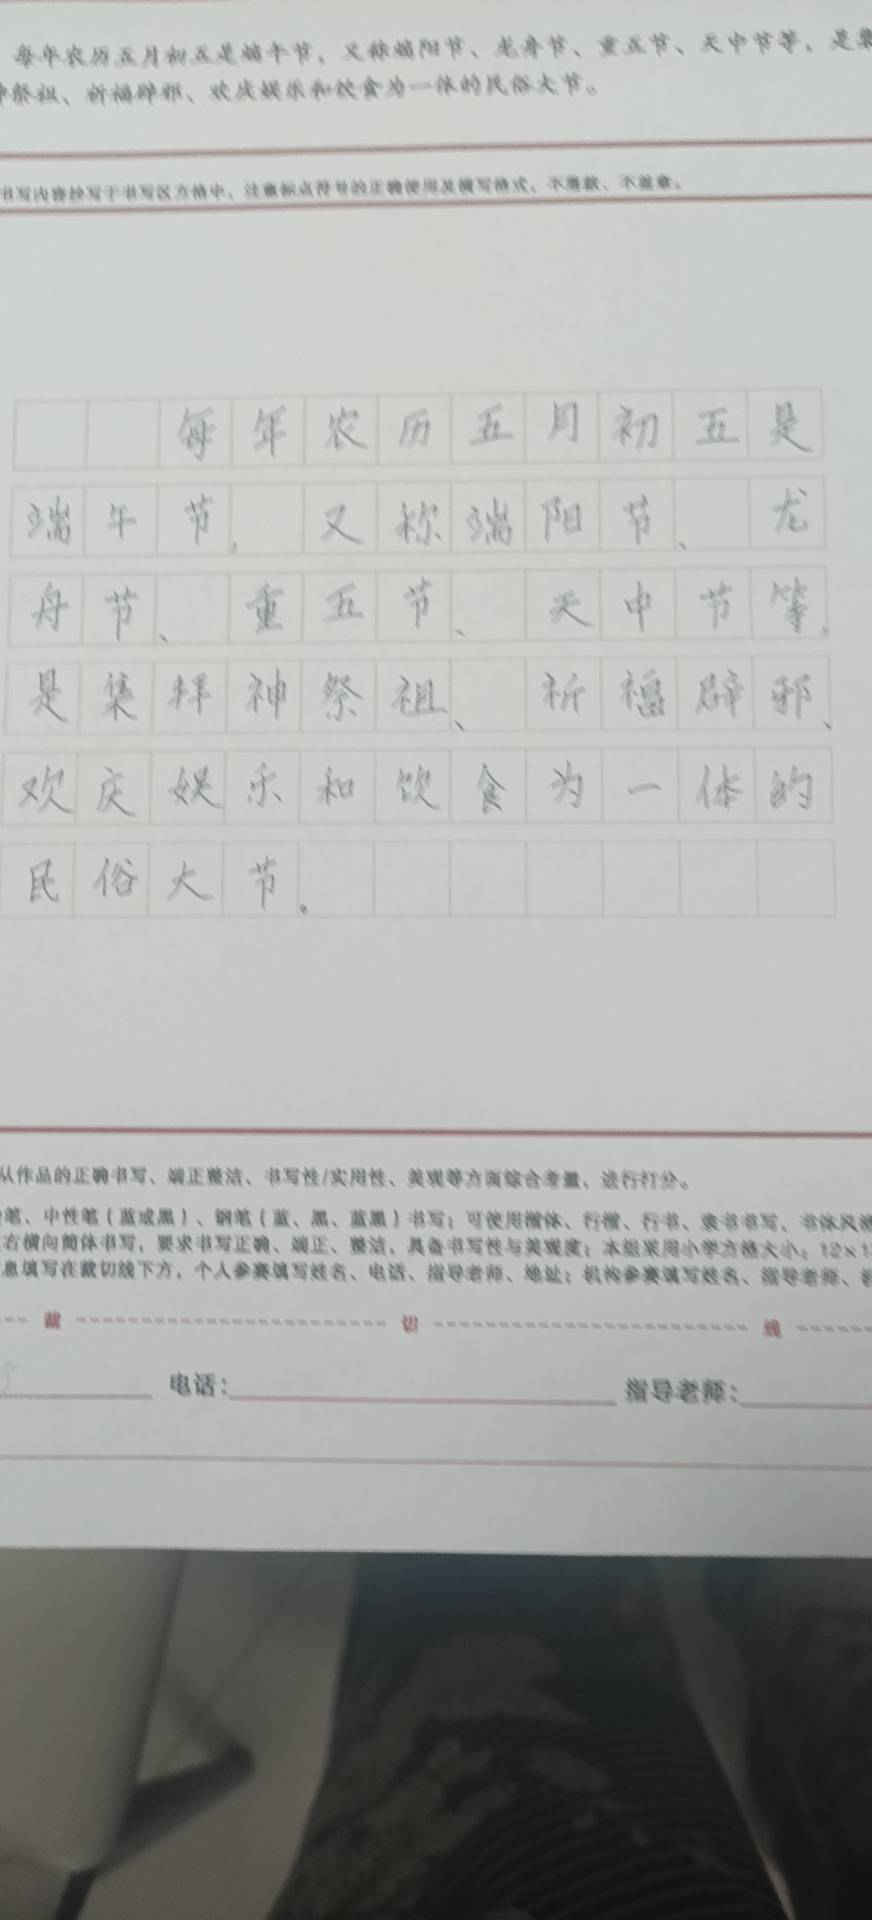 每年农历五月初五是端午节，又称端阳节、龙舟节、重五节、天中节等，是集
神祭祖、祈福辟邪、欢庆娱乐和饮食为一体的民俗大节。
书写内容抄写于书写区方格中，注意标点符号的正确使用及横写格式，不落款、不盖章。
每年农历五月初五是
端午节，又称端阳节、龙
舟节、重五节、天中节等，
是集拜神祭祖、祈福辟邪、
欢庆娱乐和饮食为一体的
民俗大节。
从作品的正确书写、端正整洁、书写性/实用性、美观等方面综合考量，进行打分。
笔、中性笔（蓝或黑）、钢笔（蓝、黑、蓝黑）书写；可使用楷体、行楷、行书、隶书书写，书体风格
右横向简体书写，要求书写正确、端正、整洁，具备书写性与美观度；本组采用小学方格大小：12×1
息填写在裁切线下方，个人参赛填写姓名、电话、指导老师、地址；机构参赛填写姓名、指导老师、
裁 切 线
电话： 指导老师：